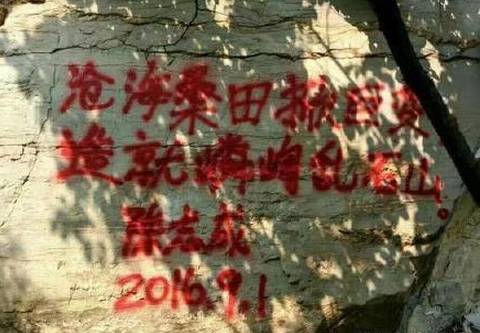 沧海桑田掀巨变,
造就嶙峋乱石山。
陈志成
2016.9.1